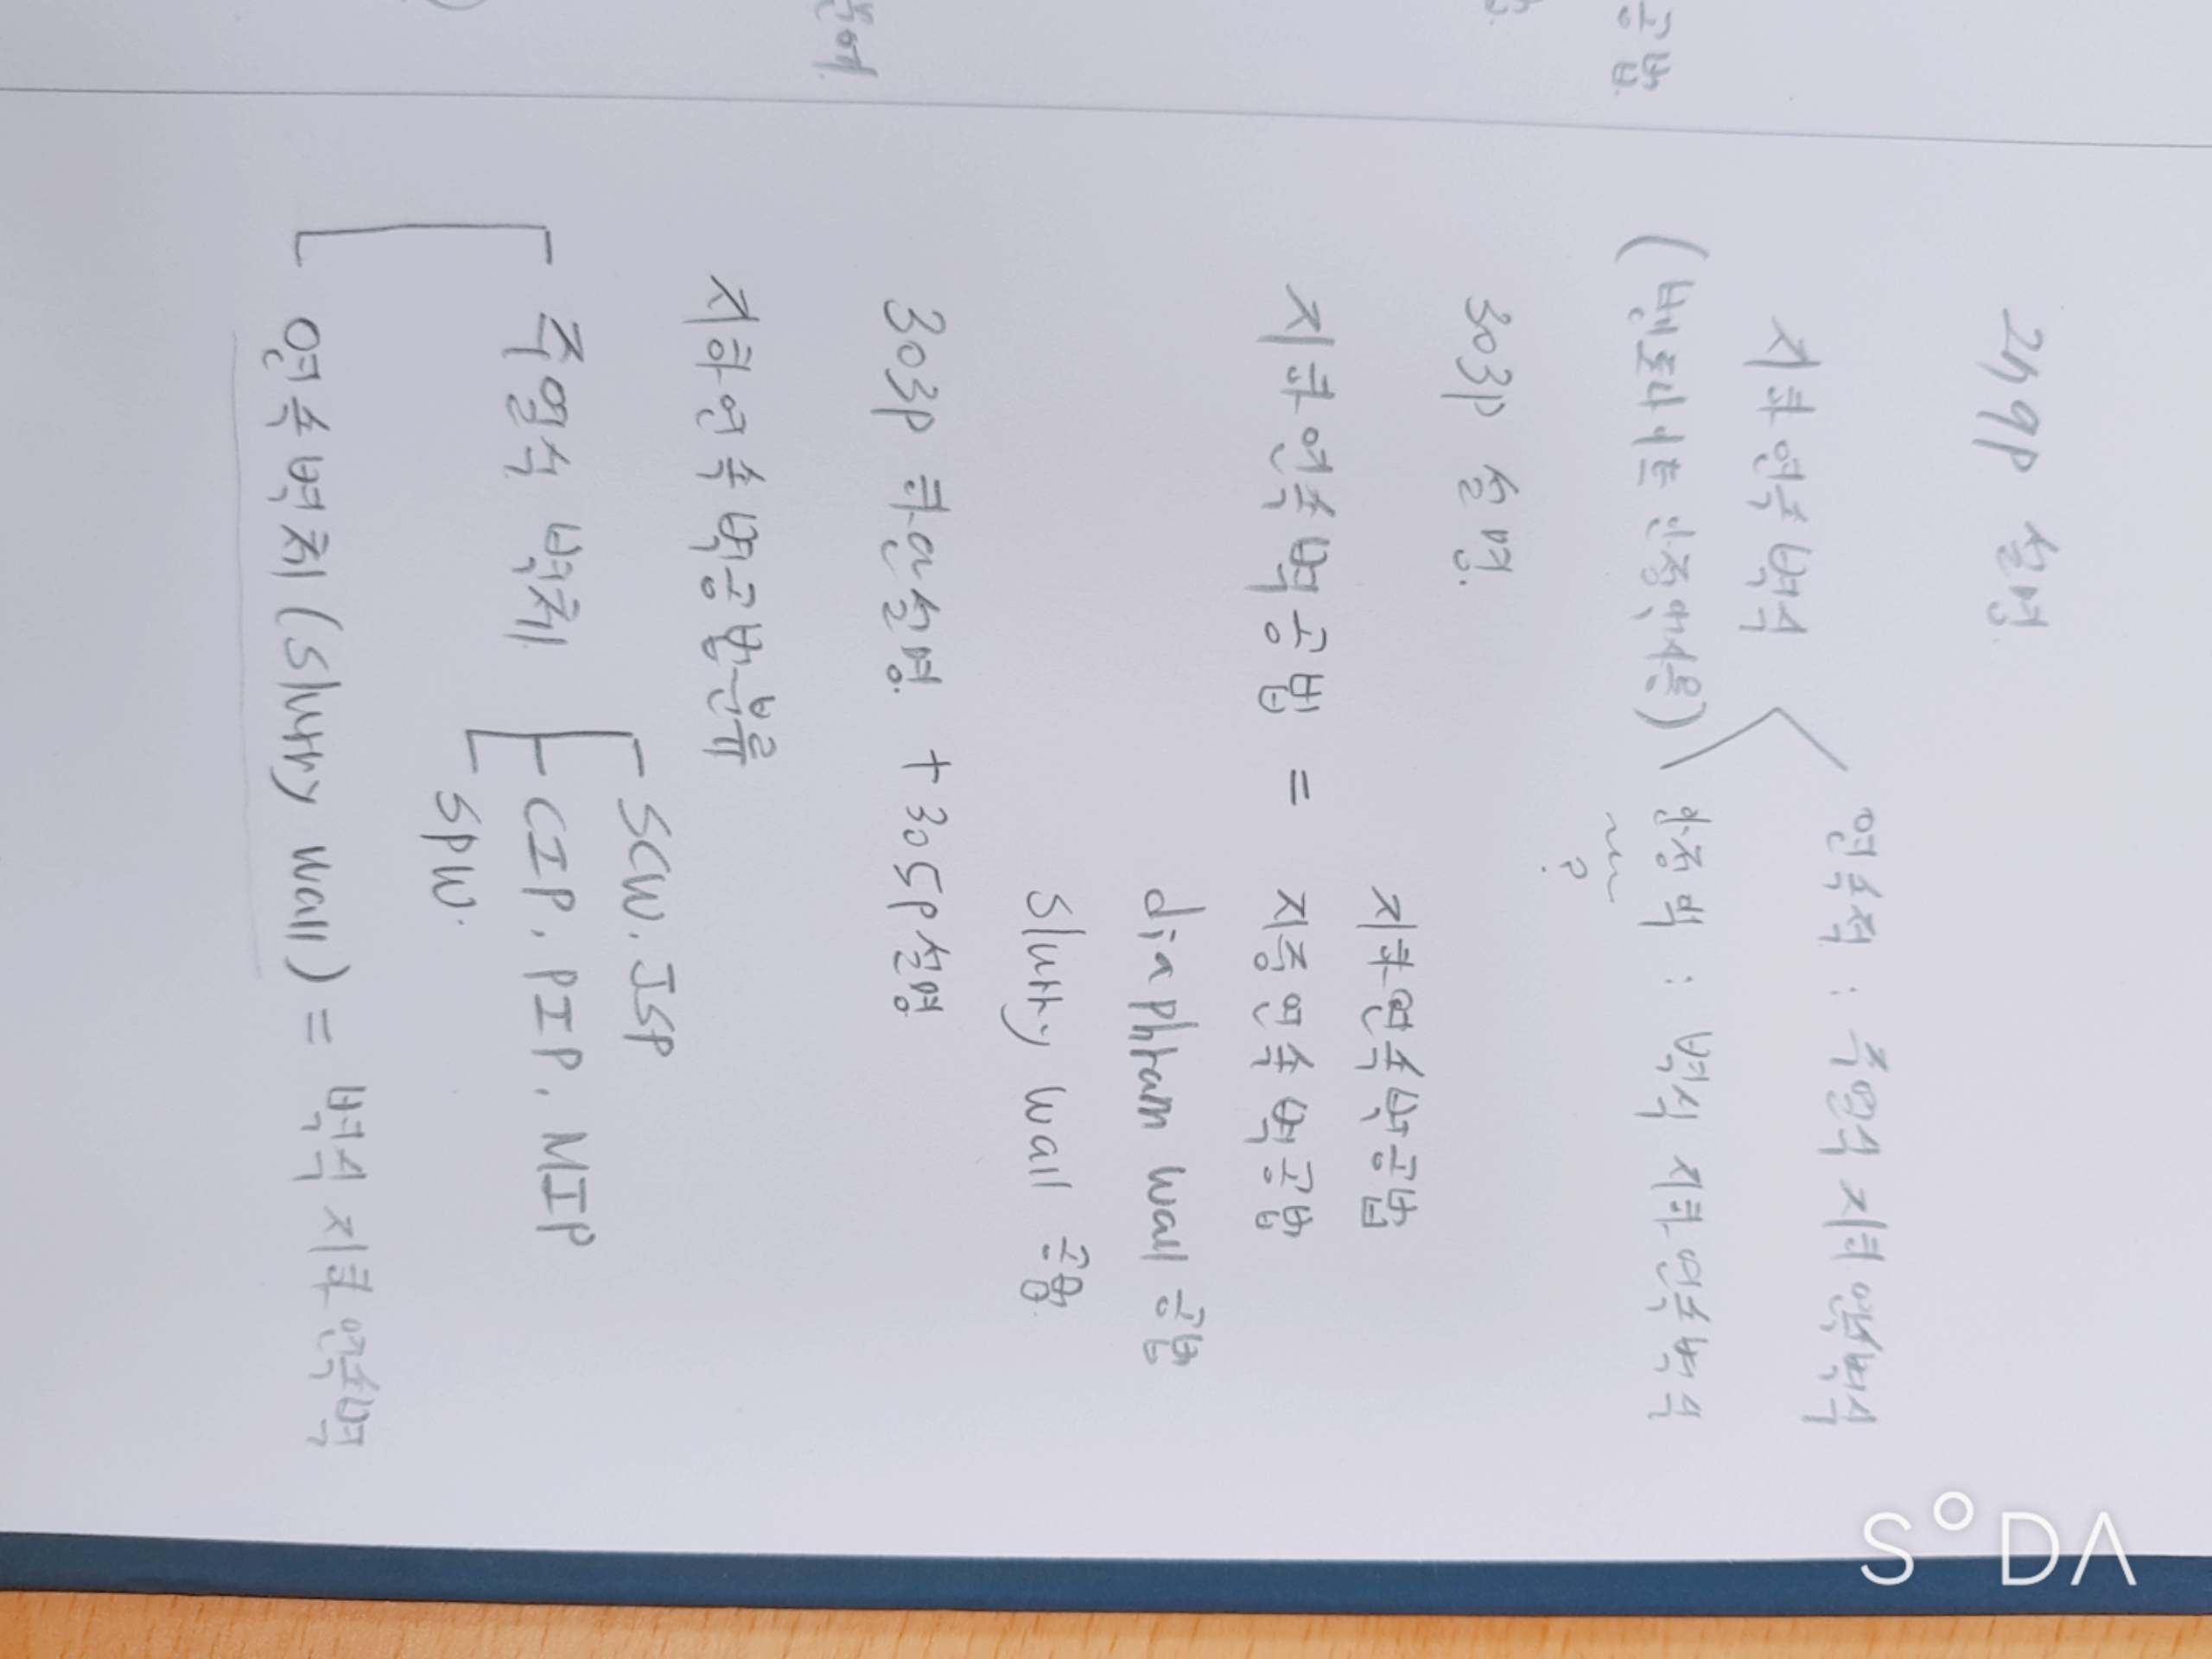 공법
299p 설명.
지하연속벽식
연속적 : 주열식 지하연속벽식
(벤토나이트 안정액사용)
안정액 : 벽식 지하연속벽식
?
303p 설명.
지하연속벽공법 =
지하연속벽공법
지중연속벽공법
diaphram wall 공법
Slurry wall 공법.
303p 하단설명. + 305p설명
지하연속벽공법분류
주열식 벽체
SCW. JSP
CIP. PIP. MIP
SPW.
연속벽체 (Slurry wall) = 벽식 지하연속벽
SODA